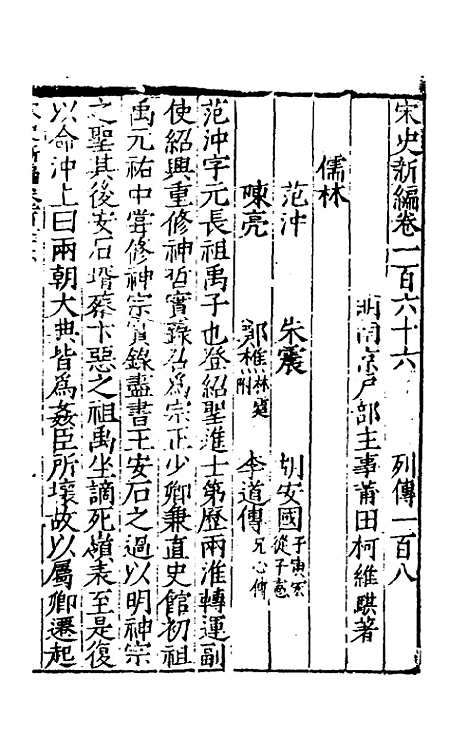 宋史新編卷一百六十六 列傳一百八
明南京戶部主事莆田柯維騏著
儒林
范沖 朱震 胡安國子寅宏從子憲
陳亮 鄭樵林霆附 李道傳兄心傳
范沖字元長祖禹子也登紹聖進士第歷兩淮轉運副
使紹興重修神哲實錄召爲宗正少卿兼直史館初祖
禹元祐中嘗修神宗實錄盡書王安石之過以明神宗
之聖其後安石壻蔡卞惡之祖禹坐謫死嶺表至是復
以命沖上曰兩朝大典皆爲姦臣所壞故以屬卿遷起